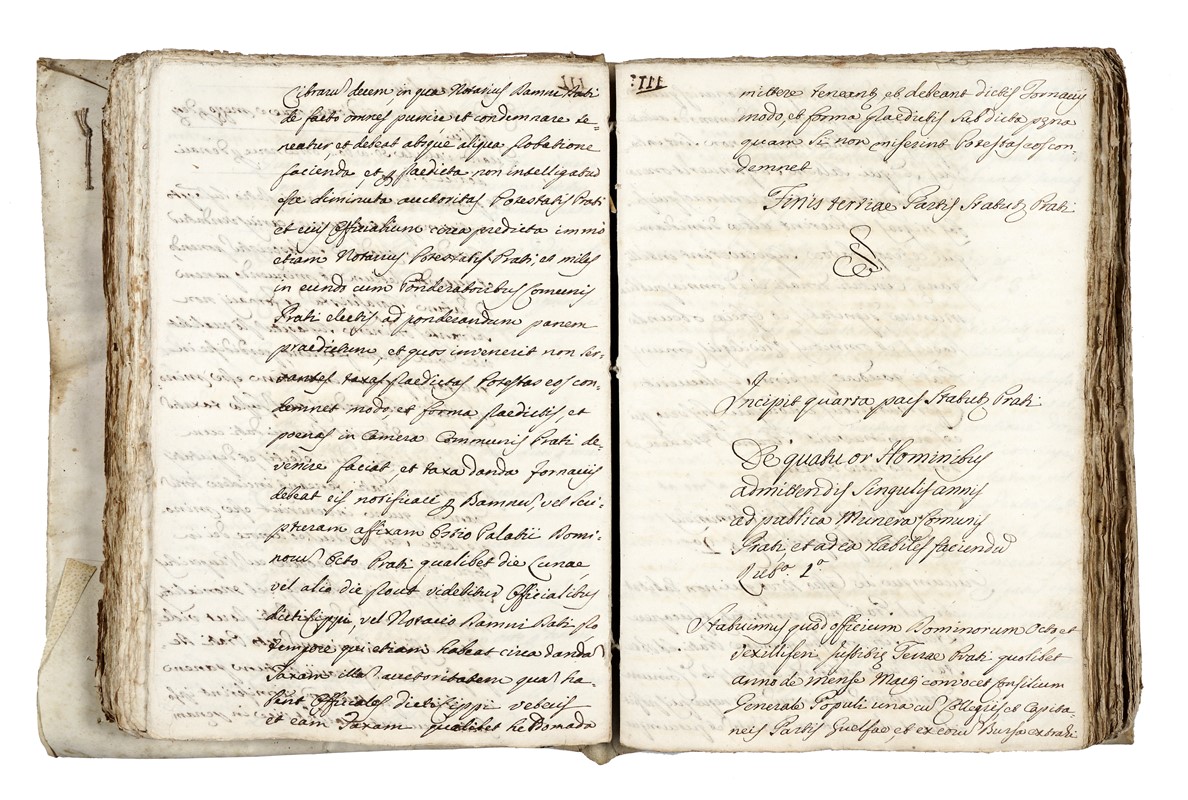 Librarũ decem, in qua Notarius Damni Dati
de facto omnes punire et condemnare te-
neatur, et debeat absque aliqua probatione
facienda, et p praedicta non intelligatur
esse diminuta auctoritas Potestatis Prati
et eius officialium circa predicta immo
etiam Notarius Potestatis Prati, et miles
in eundo cum Ponderatoribus Comunis
Prati electis ad ponderandum panem
praedictum, et quos invenerit non ser-
vantes taxas praedictas Potestas eos con-
demnet modo, et forma praedictis, et
poenas in Camera Communis Prati de-
venire faciat, et taxa danda fornariis
debeat eis notificari p Bamnũ, vel scri-
pturam affixam Ostio Palatii Domi-
norũ Octo Prati qualibet die Lunae
vel alio die prout videbitur Officialibus
dictis Cippi, vel Notario Damni Dati pro
tempore qui etiam habeat circa dandã
Taxam illã auctoritatem quã ha-
bent Officiales dicti Cippi veteris
et eam Taxam qualibet hebdomada
III
mittere teneantr et debeant dictis Fornariis
modo, et forma praedictis sub dicta poena
quam si non miserint Potestas eos con-
demnet
Finis tertiae Partis Statutr Prati
Incipit quarta pars Statutr Prati
De quatuor Hominibus
admittendis singulis annis
ad publica Munera Comunis
Prati, et ad ea habiles faciendũ
Rubᵃ. 1ᵃ
Statuimus quod officium Dominorum Octo et
Vexilliferi Justitiae Terrae Prati quolibet
anno de mense Maij convocet Consilium
Generale Populi una cũ Collegijs et Capita-
neis Partis Guelfae, et ex eorũ Bursa extrahi